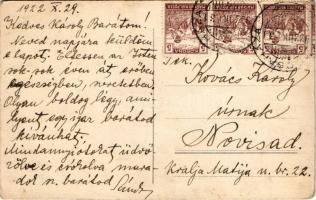 1922 X. 29.
Kedves Károly Barátom!
Neved napjára küldöm
e lapot. Éltessen az Isten
sok-sok éven át, erőben
egészségben, szeretetben
Olyan boldog légy, ami-
lyent egy igaz barátod
kívánhat.
Mindannyiótokat üdvö-
zölve és csókolva, mara-
dok n. barátod
Tek.
Kovács Károly
úrnak
Novisad.
Kralja Matije u. br. 22.